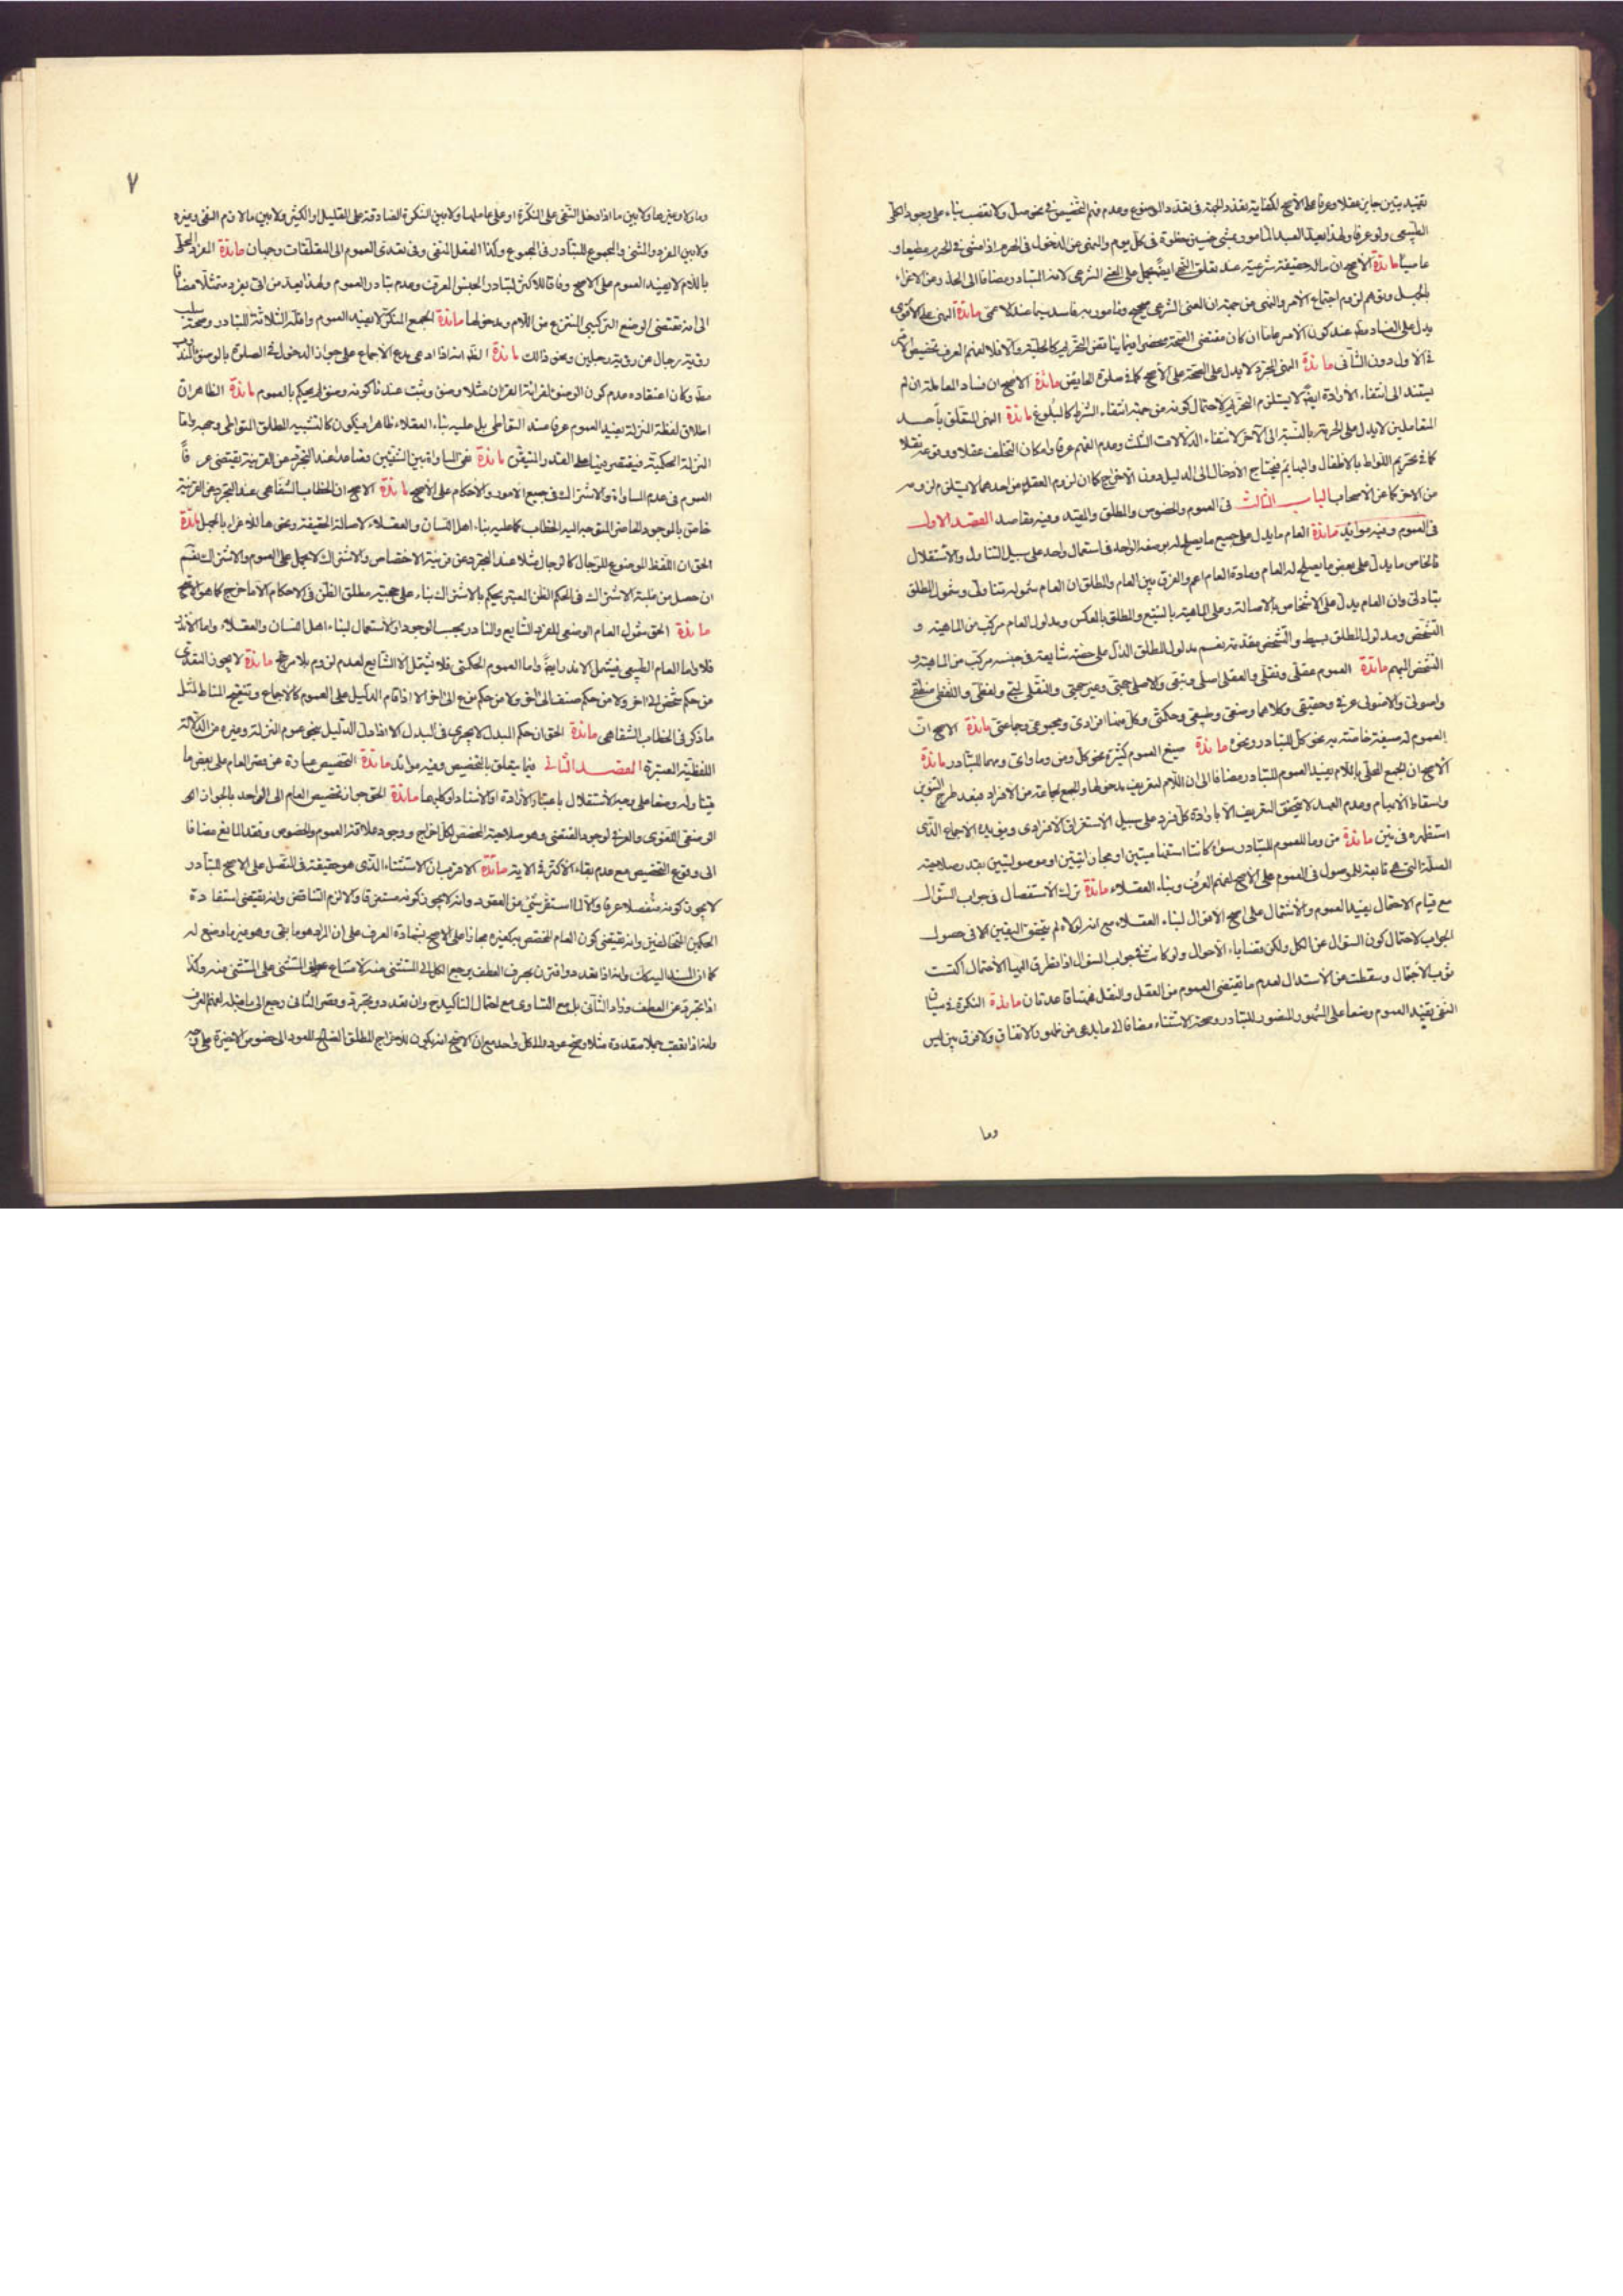 تقييد يتين جاين عقلا وعرفا على الأصح لكفاية تعدد الجهة فى تعدد الموضوع وعدم فهم التخصيص فى نحو صل ولا تغصب بناء على وجود الكلى
الطبيعى ولو عرفا ولهذا يعد العبد المأمور بمشى خمسين خطوة فى كل يوم والنهى عن الدخول فى الحرم اذا مشى فى الحرم مطيعا و
عاصيا مائدة الأصح ان ماله حقيقة شرعية عند تعلق النهى ايضا يحمل على المعنى الشرعى لانه المتبادر مضافا الى الحذر من الاغراء
بالجهل وتوهم لزوم اجتماع الأمر والنهى من جهة ان المعنى الشرعى صحيح ومأمور به فاسد بما عندنا لا مـ مائدة النهى على الأقوى
يدل على الفساد مط عند كون الأمر عاما ان كان مقتضى الصحة محصورا فيما يناقض التحريم كالحلية والا فلا لفهم العرف تخصيص الأمر
فى الاول دون الثانى مائدة النهى المجرد لا يدل على الصحة على الأصح كما فى صلوة الحايض مائدة الأصح ان فساد المعاملة ان لم
يستند الى انتفاء الأرادة ايضا لا يستلزم التحريم لاحتمال كونه من جهة انتفاء الشرط كالبلوغ مائدة النهى المتعلق بأحد
المتعاملين لا يدل على الحرمة بالنسبة الى الآخر لانتفاء الدلالات الثلث وعدم الفهم عرفا وامكان التخلف عقلا ووقوعه نقلا
كما فى تحريم اللواط بالأطفال والبهائم فيحتاج الأدخال الى الدليل دون الاخراج كما ان لزوم العقد من احدهما لا يستلزم لزومه
من الاخر كما عن الأصحاب الباب الثالث فى العموم والخصوص والمطلق والمقيد وفيه مقاصد المقصد الاول
فى العموم وفيه موائد مائدة العام ما يدل على جميع ما يصلح له بوصفه الواحد فى استعمال واحد على سبيل التناول والأستقلال
فالخاص ما يدل على بعض ما يصلح له العام ومادة العام اعم والفرق بين العام والمطلق ان العام شموله تناولى وشمول المطلق
تبادلى وان العام يدل على الاشخاص بالاصالة وعلى الماهية بالتبع والمطلق بالعكس ومدلول العام مركب من الماهية و
التشخص ومدلول المطلق بسيط والتشخص مقدمة نعم مدلول المطلق الدال على حصة شايعة فى جنسه مركب من الماهية و
التشخص المبهم مائدة العموم عقلى ونقلى والعقلى اصلى وتبعى والاصلى حجتى وغير حجتى والنقلى لبى ولفظى واللفظى منطقى
واصولى والاصولى عرفى وحقيقى وكلاهما وضعى وطبيعى وحكمتى وكل منها افرادى ومجموعى وجماعتى مائدة الاصح ان
العموم له صيغة خاصة به نحو كل للتبادر ونحوه مائدة صيغ العموم كثيرة نحو كل ومن وما واى ومهما للتبادر مائدة
الأصح ان الجمع المحلى باللام يفيد العموم للتبادر مضافا الى ان اللام لتعريف مدخولها والجمع لجماعة من الأفراد فبعد طرح التنوين
واسقاط الأبهام وعدم العهد لا يتحقق التعريف الا بارادة كل فرد على سبيل الأستغراق الأفرادى ويؤيده الأجماع الذى
استظهره فى ين مائدة من وما للعموم للتبادر سواء كانتا استفهاميتين او مجازاتيتين او موصولتين بقدر صلاحية
الصلة التى هى تابعة للموصول فى العموم على الأصح لفهم العرف وبناء العقلاء مائدة ترك الأستفصال فى جواب السؤال
مع قيام الاحتمال يفيد العموم والأشتمال على اصح الأقوال لبناء العقلاء مع انه لولاه لم يتحقق اليقين الا فى حصول
الجواب لاحتمال كون السؤال عن الكل ولكن قضايا الأحوال ولو كانت فى جواب السؤال اذا تطرق اليها الأحتمال اكتست
ثوب الأجمال وسقطت عن الأستدلال لعدم ما يقتضى العموم من العقل والنقل فهنا قاعدتان مائدة النكرة فى سياق
النفى تفيد العموم وضعا على المشهور المنصور للتبادر وصحة الاستثناء مضافا الى ما يدعى من ظهور الاتفاق ولا فرق بين ليس
وما
٧
وما ولا وغيرها ولا بين ما اذا دخل النفى على النكرة او على عاملها ولا بين النكرة الصادقة على القليل او الكثير ولا بين ما لازم النفى وغيره
ولا بين المفرد والمثنى والمجموع للتبادر فى المجموع وكذا الفعل المنفى وفى تعدى العموم الى المتعلقات وجهان مائدة المفرد المحلى
باللام لا يفيد العموم على الاصح وفاقا للأكثر لتبادر الجنس المعرف وعدم تبادر العموم ولهذا يعد من اتى بفرد ممتثلا مضافا
الى انه مقتضى الوضع التركيبى المنتزع من اللام ومدخولها مائدة الجمع المنكر لا يفيد العموم واقله الثلاثة للتبادر وصحة سلب
رؤية رجال عن رؤية رجلين ونحو ذالك مائدة الظ انه اذا ادعى مدع الأجماع على جواز الدخول فى الصلوة بالوضوء المندوب
مط وكان اعتقاده عدم كون الوضوء لقرائة القران مثلا وضوء وثبت عندنا كونه وضوء لم يحكم بالعموم مائدة الظاهر ان
اطلاق لفظة المنزلة يفيد العموم عرفا عند التعاطى بل عليه بناء العقلاء ظاهرا فيكون كالتشبيه المطلق المتواطى وحجه واما
المنزلة الحكمية فيقتصر فيها على القدر المتيقن مائدة نفى المساواة بين الشيئين فصاعدا عند التجرد عن القرينة يقتضى عرفا
العموم فى عدم المساواة والاشتراك فى جميع الامور والأحكام على الأصح مائدة الاصح ان الخطاب الشفاهى عند التجرد عن القرينة
خاص بالموجود الحاضر المتوجه اليه الخطاب كما عليه بناء اهل اللسان والعقلاء لاصالة الحقيقة ونحوها للأغراء بالجهل مائدة
الحق ان اللفظ الموضوع للرجال كالرجال مثلا عند التجرد عن قرينة الاختصاص والاشتراك لا يحمل على العموم والاشتراك نعم
ان حصل من غلبة الاشتراك فى الحكم الظن المعتبر يحكم بالاشتراك بناء على حجية مطلق الظن فى الاحكام الا ما خرج كما هو الأصح
مائدة الحق شمول العام الوضعى للفرد الشايع والنادر بحسب الوجود او الأستعمال لبناء اهل اللسان والعقلاء واما الأندر
فلا واما العام الطبيعى فيشمل الاندر ايضا واما العموم الحكمتى فلا يشمل الا الشايع لعدم لزوم بلا مرجح مائدة لا يجوز التعدى
من حكم شخص الى اخر ولا من حكم صنف الى اخر ولا من حكم نوع الى اخر الا اذا قام الدليل على العموم كالأجماع وتنقيح المناط لمثل
ما ذكر فى الخطاب الشفاهى مائدة الحق ان حكم المبدل لا يجرى فى البدل الا اذا دل الدليل بنحو عموم المنزلة وغيره من الدلالة
اللفظية المعتبرة المقصد الثانى فيما يتعلق بالتخصيص وفيه موائد مائدة التخصيص عبارة عن قصر العام على بعض ما
يتناوله وضعا على وجه الأستقلال باعتبار الأرادة او الأسناد او كليهما مائدة الحق جواز تخصيص العام الى الواحد بالجواز
الوضعى اللغوى والعرفى لوجود المقتضى وهو صلاحية المخصص لكل اخراج ووجود علاقة العموم والخصوص وفقد المانع مضافا
الى وقوع التخصيص مع عدم بقاء الأكثر فى الاية مائدة الاقرب ان الاستثناء الذى هو حقيقة فى المتصل على الاصح للتبادر
لا يجوز كونه منفصلا عرفا والا لما استقر شئ من العقود وانه لا يجوز كونه مستغرقا والا لزم التناقض وانه يقتضى استفادة
الحكمين المتخالفين وانه يقتضى كون العام المخصص به كغيره مجازا على الاصح بشهادة العرف على ان المراد هو ما بقى وهو غير ما وضع له
كما ان المسند اليه كك وانه اذا تعدد واقترن بحرف العطف يرجع الكل الى المستثنى منه لامتناع المستثنى على المستثنى منه وكذا
اذا تجرد عن العطف وزاد الثانى بل مع التساوى مع احتمال التأكيد ح وان تعدد وتجرد وقصر الثانى رجع الى ما قبله لفهم العرف
وانه اذا تعقب جملا متعددة مثلا وصح عوده الى كل واحد مع ان الاصح انه يكون للأخراج المطلق الصالح للعود الى خصوص الاخيرة على